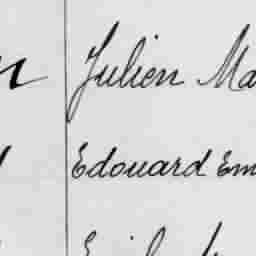 Julien Ma
Edouard Em